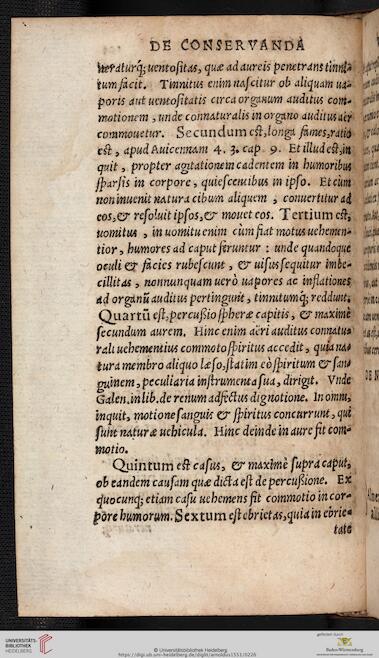 DE CONSERVANDA
neraturq́; uentositas, quæ ad aureis penetrans tinni-
tum facit. Tinnitus enim nascitur ob aliquam ua-
poris aut uentositatis circa organum auditus com-
motionem, unde connaturalis in organo auditus aër
commouetur. Secundum est, longa fames, ratio
est, apud Auicennam 4. 3. cap. 9. Et illud est, in
quit, propter agitationem cadentem in humoribus
sparsis in corpore, quiescentibus in ipso. Et cùm
non inuenit natura cibum aliquem, conuertitur ad
eos, & resoluit ipsos, & mouet eos. Tertium est,
uomitus, in uomitu enim cùm fiat motus uehemen-
tior, humores ad caput feruntur: unde quandoque
oculi & facies rubescunt, & uisus sequitur imbe-
cillitas, nonnunquam uerò uapores ac inflationes
ad organũ auditus pertingunt, tinnitumq́; reddunt.
Quartũ est, percußio sphæræ capitis, & maximè
secundum aurem. Hinc enim aëri auditus connatu-
rali uehementius commoto spiritus accedit, quia na-
tura membro aliquo læso, statim eò spiritum & san-
guinem, peculiaria instrumenta sua, dirigit. Vnde
Galen. in lib. de renum adfectus dignotione. In omni,
inquit, motione sanguis & spiritus concurrunt, qui
sunt naturæ uehicula. Hinc deinde in aure fit com-
motio.
Quintum est casus, & maximè supra caput,
ob eandem causam quæ dicta est de percußione. Ex
quocunq; etiam casu uehemens fit commotio in cor-
pore humorum. Sextum est ebrietas, quia in ebrie-
tate
UNIVERSITÄTS-
BIBLIOTHEK
HEIDELBERG
© Universitätsbibliothek Heidelberg
https://digi.ub.uni-heidelberg.de/diglit/arnoldus1551/0226
gefördert durch
Baden-Württemberg